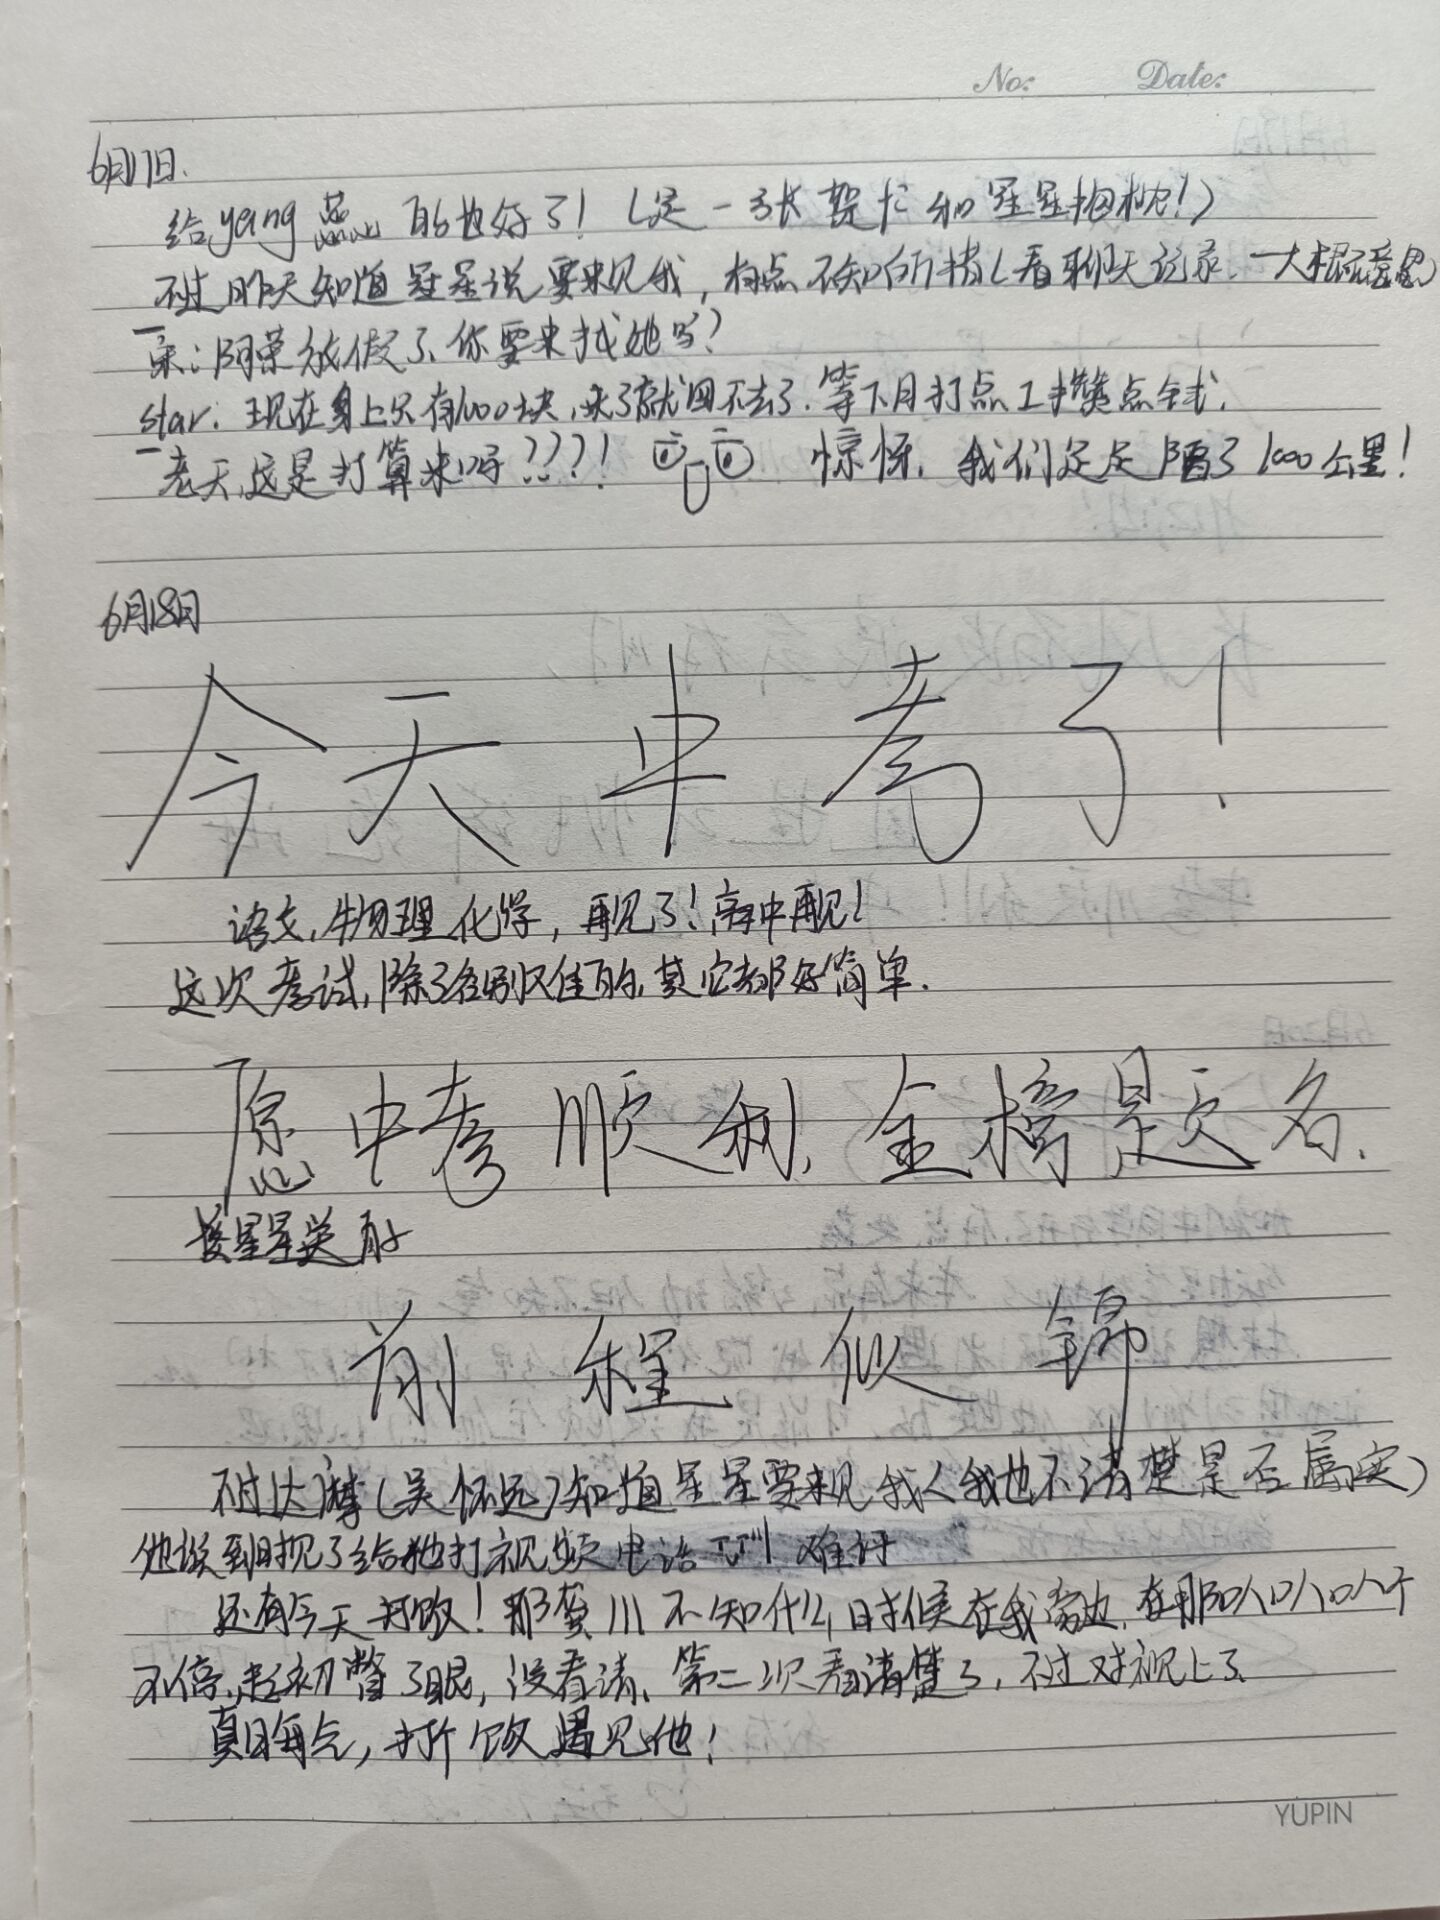 No: Date:
6月17日.
给yang 的也好了!(是一张贺卡和星星抱枕!)
不过昨天知道星星说要来见我,有点不知所措(看聊天记录、一大
:阴荣放假了、你要来找她吗?
star:现在身上只有100块,来了就回不去了.等下月打点工攒点钱.
老天,这是打算来吗????! 惊愕.我们足足隔了1000公里!
6月18日
今天中考了!
语文,物理化学,再见了!高中再见!
这次考试,除了各别 的,其它都好简单.
愿中考顺利,金榜题名.
接星星送
前程似锦
不过达 (吴怀远)知道星星要来见我(我也不清楚是否属实)
他说到时见了给她打视频电话 难评
还有今天打饭!那 川不知什么时候在我旁边.在那叭叭叭个
不停.起初瞥了眼,没看清、第二次看清楚了,不过对视上了.
真晦气,打个饭遇见他!
YUPIN